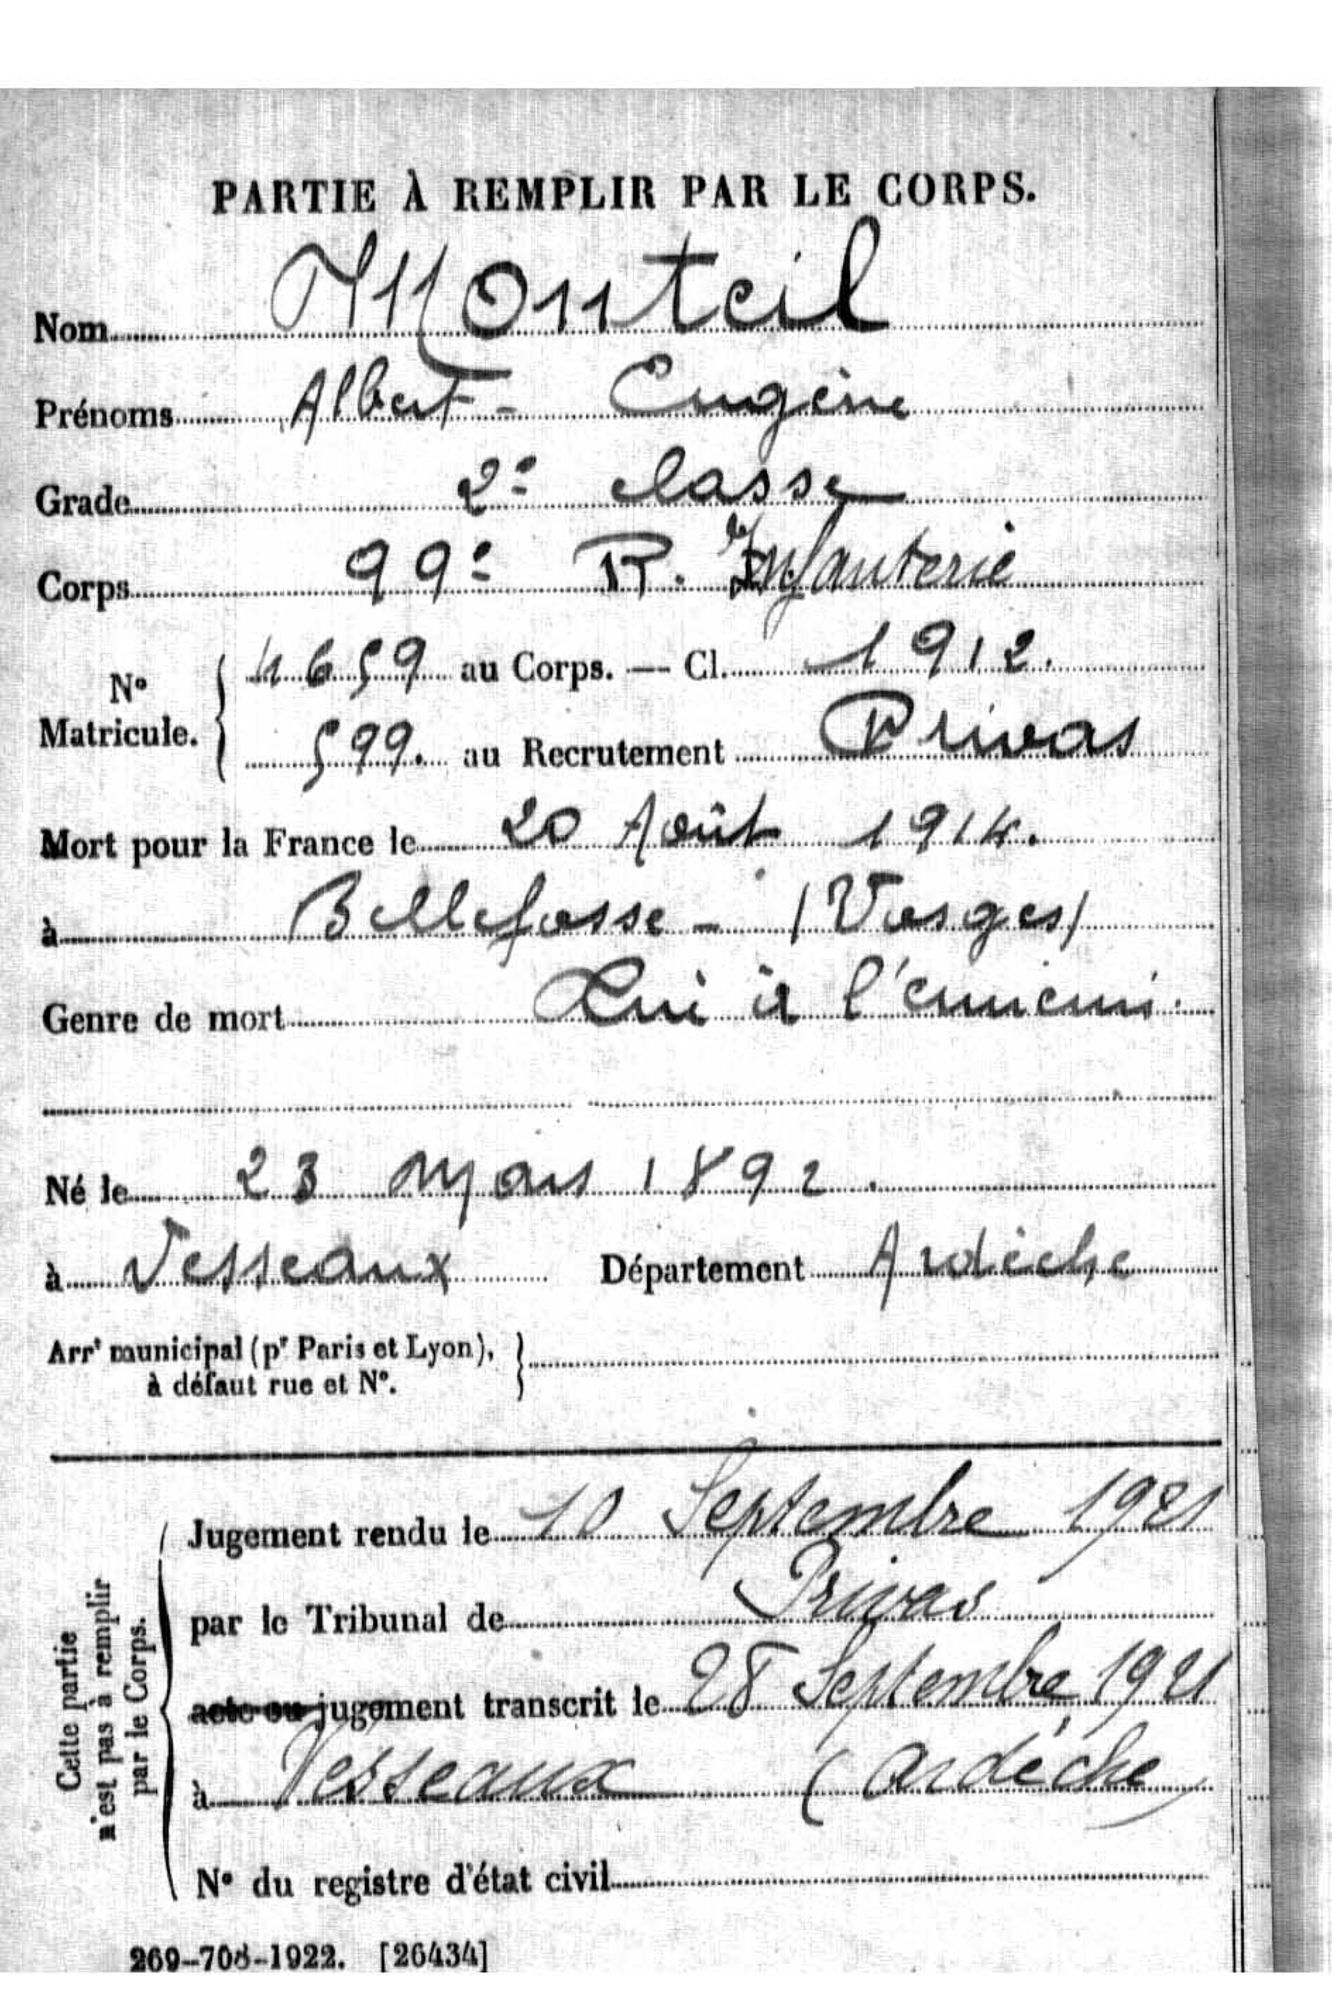 PARTIE À REMPLIR PAR LE CORPS.
Nom Monteil
Prénoms Albert - Eugène
Grade 2e classe
Corps 99e R. Infanterie
N° Matricule. { 4659 au Corps. — Cl. 1912.
599. au Recrutement Privas
Mort pour la France le 20 Août 1914.
à Bellefosse - (Vosges)
Genre de mort Tué à l'ennemi.
Né le 23 Mars 1892.
à Vesseaux Département Ardèche
Arrt municipal (pr Paris et Lyon), }
à défaut rue et N°.
Cette partie
n'est pas à remplir
par le Corps.
Jugement rendu le 10 Septembre 1921
par le Tribunal de Privas
acte ou jugement transcrit le 28 Septembre 1921
à Vesseaux (Ardèche)
N° du registre d'état civil
269-708-1922. [26434]